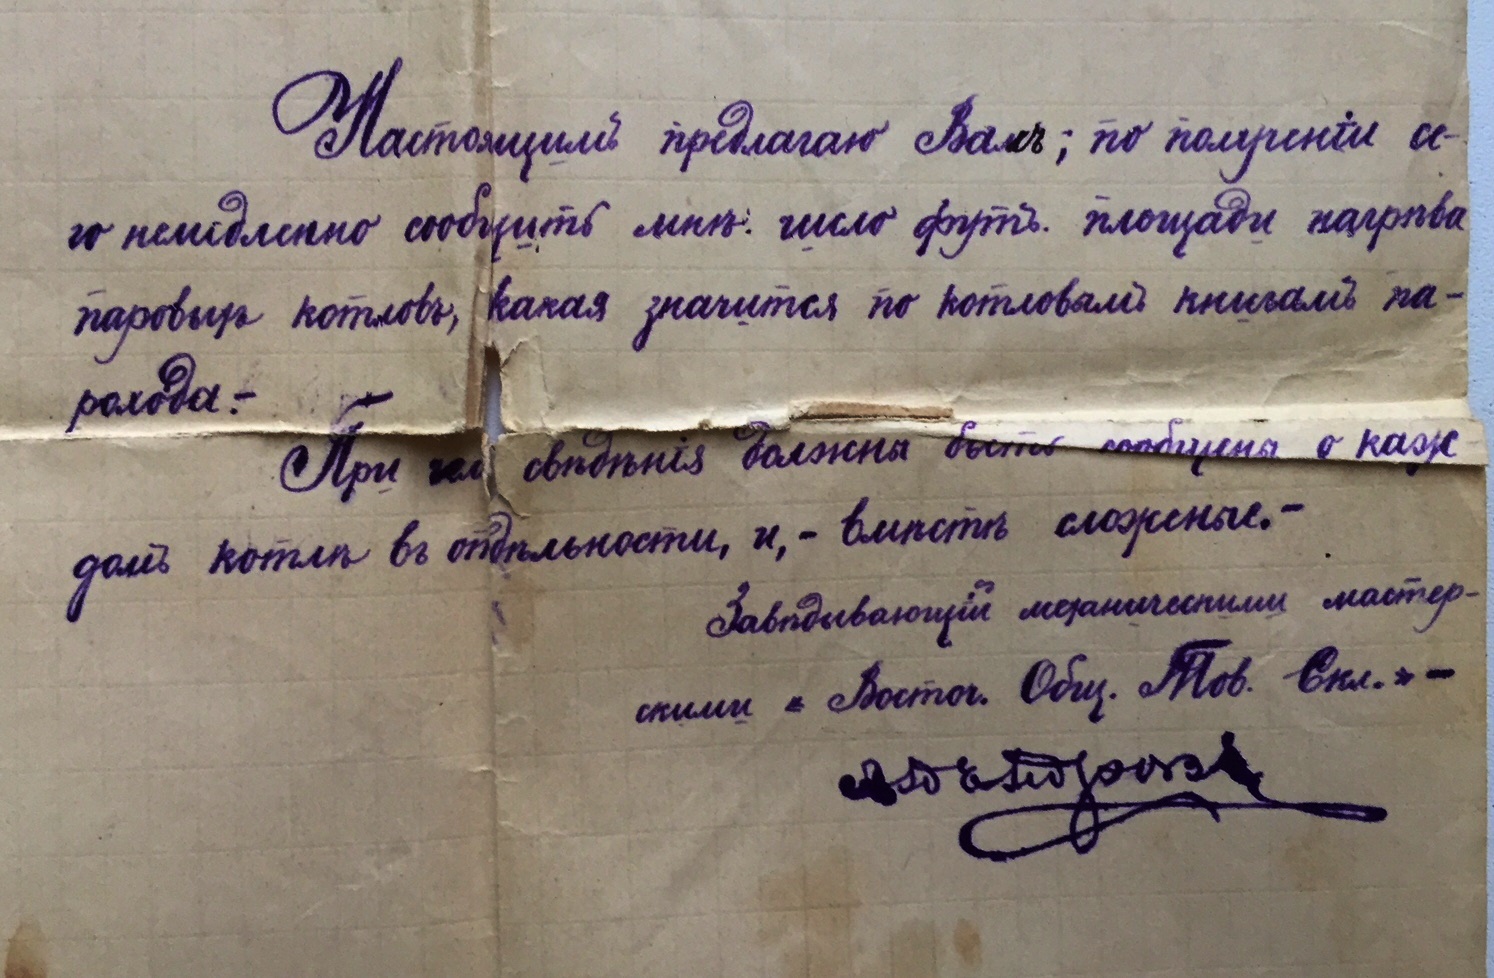 Настоящимъ предлагаю Вамъ; по полученіи се-
го немедленно сообщить мнѣ: число фут. площади нагрѣва
паровыхъ котловъ, какая значится по котловымъ книгамъ па-
рохода.-
При чем свѣдѣнія должны быть сообщены о каж
домъ котлѣ въ отдѣльности, и,- вмѣстѣ сложеные.-
Завѣдывающій механическими мастер-
скими „Восточ. Общ. Тов. Скл."-